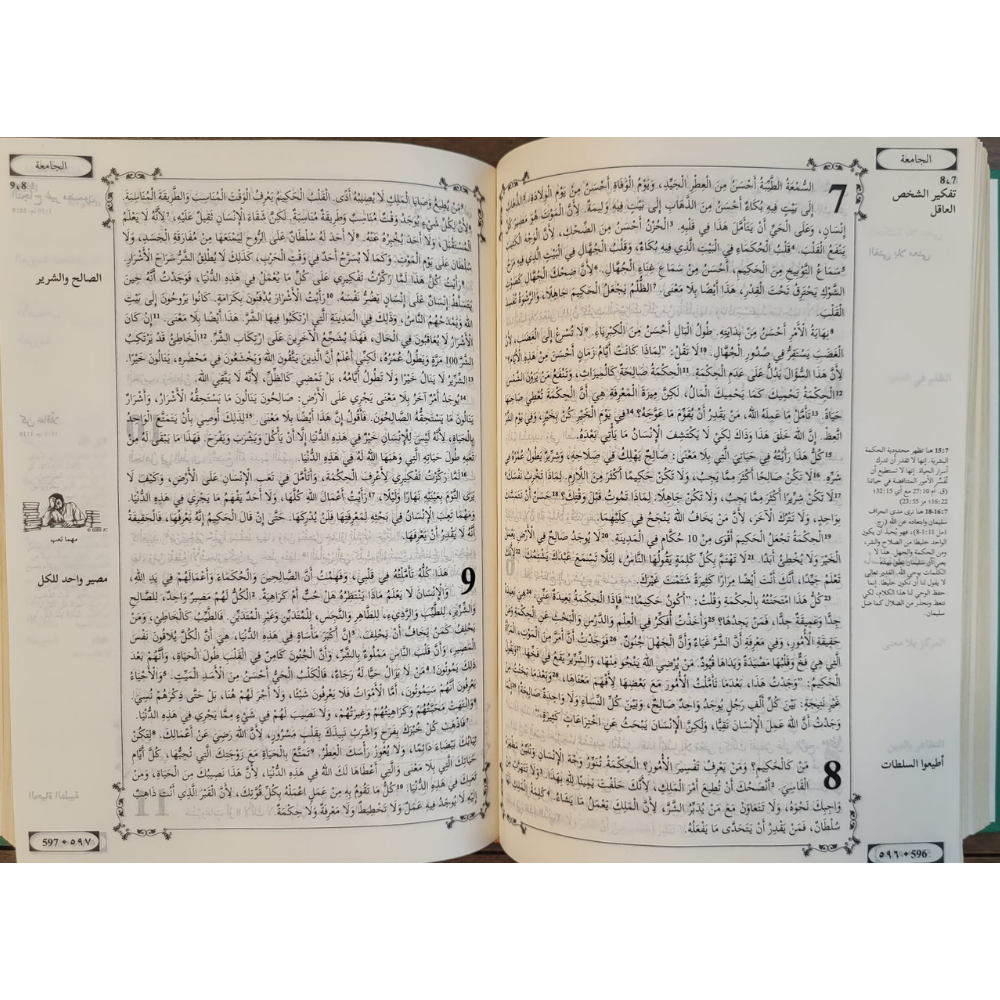 الجامعة
8،7
تفكير الشخص
العاقل
7
السُّمْعَةُ الطَّيِّبَةُ أَحْسَنُ مِنَ الْعِطْرِ الْجَيِّدِ، وَيَوْمُ الْوَفَاةِ أَحْسَنُ مِنْ يَوْمِ الْوِلَادَةِ. ²الذَّهَابُ
إِلَى بَيْتٍ فِيهِ بُكَاءٌ أَحْسَنُ مِنَ الذَّهَابِ إِلَى بَيْتٍ فِيهِ وَلِيمَةٌ. لِأَنَّ الْمَوْتَ هُوَ مَصِيرُ كُلِّ
إِنْسَانٍ، وَعَلَى الْحَيِّ أَنْ يَتَأَمَّلَ هَذَا فِي قَلْبِهِ. ³الْحُزْنُ أَحْسَنُ مِنَ الضَّحِكِ، لِأَنَّ الْوَجْهَ الْكَئِيبَ
يَنْفَعُ الْقَلْبَ. ⁴قَلْبُ الْحُكَمَاءِ فِي الْبَيْتِ الَّذِي فِيهِ بُكَاءٌ، وَقَلْبُ الْجُهَّالِ فِي الْبَيْتِ الَّذِي فِيهِ
⁵سَمَاعُ التَّوْبِيخِ مِنَ الْحَكِيمِ، أَحْسَنُ مِنْ سَمَاعِ غِنَاءِ الْجُهَّالِ. ⁶لِأَنَّ ضَحِكَ الْجُهَّالِ
الشَّوْكِ يَحْتَرِقُ تَحْتَ الْقِدْرِ، هَذَا أَيْضًا بِلَا مَعْنَى. ⁷الظُّلْمُ يَجْعَلُ الْحَكِيمَ جَاهِلًا، وَالرِّشْوَةُ تُفْسِدُ
الْقَلْبَ.
⁸نِهَايَةُ الْأَمْرِ أَحْسَنُ مِنْ بِدَايَتِهِ. طُولُ الْبَالِ أَحْسَنُ مِنَ الْكِبْرِيَاءِ. ⁹لَا تُسْرِعْ إِلَى الْغَضَبِ،
الْغَضَبَ يَسْتَقِرُّ فِي صُدُورِ الْجُهَّالِ. ¹⁰لَا تَقُلْ: "لِمَاذَا كَانَتْ أَيَّامُ زَمَانٍ أَحْسَنَ مِنْ هَذِهِ الْأَيَّامِ"
لِأَنَّ هَذَا السُّؤَالَ يَدُلُّ عَلَى عَدَمِ الْحِكْمَةِ. ¹¹الْحِكْمَةُ صَالِحَةٌ كَالْمِيرَاثِ، وَتَنْفَعُ مَنْ يَرَوْنَ الشَّمْسَ
¹²الْحِكْمَةُ تَحْمِيكَ كَمَا يَحْمِيكَ الْمَالُ، لَكِنَّ مِيزَةَ الْمَعْرِفَةِ هِيَ أَنَّ الْحِكْمَةَ تُعْطِي صَاحِبَهَا
حَيَاةً. ¹³تَأَمَّلْ مَا عَمِلَهُ اللهُ، مَنْ يَقْدِرُ أَنْ يُقَوِّمَ مَا عَوَّجَهُ؟ ¹⁴فِي يَوْمِ الْخَيْرِ كُنْ بِخَيْرٍ، وَفِي يَوْمِ الشَّرِّ
اتَّعِظْ. إِنَّ اللهَ خَلَقَ هَذَا وَذَاكَ لِكَيْ لَا يَكْتَشِفَ الْإِنْسَانُ مَا يَأْتِي بَعْدَهُ.
¹⁵كُلُّ هَذَا رَأَيْتُهُ فِي حَيَاتِي الَّتِي بِلَا مَعْنَى: صَالِحٌ يَهْلِكُ فِي صَلَاحِهِ، وَشِرِّيرٌ
¹⁶لَا تَكُنْ صَالِحًا أَكْثَرَ مِمَّا يَجِبُ، وَلَا تَكُنْ حَكِيمًا أَكْثَرَ مِمَّا يَجِبُ، لِمَاذَا تُهْلِكُ نَفْسَكَ؟
¹⁷لَا تَكُنْ شِرِّيرًا أَكْثَرَ مِمَّا يَجِبُ، وَلَا تَكُنْ جَاهِلًا. لِمَاذَا تَمُوتُ قَبْلَ وَقْتِكَ؟ ¹⁸حَسَنٌ أَنْ تَتَمَسَّكَ
بِوَاحِدٍ، وَلَا تَتْرُكَ الْآخَرَ، لِأَنَّ مَنْ يَخَافُ اللهَ يَنْجَحُ فِي كِلَيْهِمَا.
¹⁹الْحِكْمَةُ تَجْعَلُ الْحَكِيمَ أَقْوَى مِنْ 10 حُكَّامٍ فِي الْمَدِينَةِ. ²⁰لَا يُوجَدُ صَالِحٌ فِي الْأَرْضِ
الْخَيْرَ وَلَا يُخْطِئُ أَبَدًا. ²¹لَا تَهْتَمَّ بِكُلِّ كَلِمَةٍ يَقُولُهَا النَّاسُ، لِئَلَّا تَسْمَعَ عَبْدَكَ يَشْتِمُكَ. ²²لِأَنَّكَ
تَعْلَمُ جَيِّدًا، أَنَّكَ أَنْتَ أَيْضًا مِرَارًا كَثِيرَةً شَتَمْتَ غَيْرَكَ.
²³كُلُّ هَذَا امْتَحَنْتُهُ بِالْحِكْمَةِ وَقُلْتُ: "أَكُونُ حَكِيمًا!" فَإِذَا الْحِكْمَةُ بَعِيدَةٌ عَنِّي.
جِدًّا وَعَمِيقَةٌ جِدًّا، فَمَنْ يَجِدُهَا؟ ²⁵وَأَخَذْتُ أُفَكِّرُ فِي الْعِلْمِ وَالدَّرْسِ وَالْبَحْثِ عَنِ الْحِكْمَةِ وَعَنْ
حَقِيقَةِ الْأُمُورِ، وَفِي مَعْرِفَةِ أَنَّ الشَّرَّ غَبَاءٌ وَأَنَّ الْجَهْلَ جُنُونٌ. ²⁶فَوَجَدْتُ أَنَّ أَمَرَّ مِنَ الْمَوْتِ، الْمَرْأَةُ
الَّتِي هِيَ فَخٌّ وَقَلْبُهَا مَصْيَدَةٌ وَيَدَاهَا قُيُودٌ. مَنْ يُرْضِي اللهَ يَنْجُو مِنْهَا، وَالشِّرِّيرُ يَقَعُ فِي فَخِّهَا.
الْحَكِيمُ: "وَجَدْتُ هَذَا، بَعْدَمَا تَأَمَّلْتُ الْأُمُورَ مَعَ بَعْضِهَا لِأَفْهَمَ مَعْنَاهَا،
غَيْرِ نَتِيجَةٍ: بَيْنَ كُلِّ أَلْفِ رَجُلٍ يُوجَدُ وَاحِدٌ صَالِحٌ، وَبَيْنَ كُلِّ النِّسَاءِ وَلَا وَاحِدَةٌ صَالِحَةٌ!
وَجَدْتُ أَنَّ اللهَ عَمِلَ الْإِنْسَانَ تَقِيًّا، وَلَكِنَّ الْإِنْسَانَ يَبْحَثُ عَنِ اخْتِرَاعَاتٍ كَثِيرَةٍ."
8
مَنْ كَالْحَكِيمِ؟ وَمَنْ يَعْرِفُ تَفْسِيرَ الْأُمُورِ؟ الْحِكْمَةُ تُنَوِّرُ وَجْهَ الْإِنْسَانِ وَتُلَيِّنُ مَظْهَرَهُ
الْقَاسِيَ. ²أَنْصَحُكَ أَنْ تُطِيعَ أَمْرَ الْمَلِكِ، لِأَنَّكَ حَلَفْتَ يَمِينًا لِلَّهِ بِهَذَا.
وَاجِبِكَ نَحْوَهُ، وَلَا تَتَعَاوَنْ مَعَ مَنْ يُدَبِّرُ الشَّرَّ، لِأَنَّ الْمَلِكَ يَعْمَلُ مَا يَشَاءُ.
سُلْطَانٌ، فَمَنْ يَقْدِرُ أَنْ يَتَحَدَّى مَا يَفْعَلُهُ!
15:7 هنا تظهر محدودية الحكمة
البشرية. إنها لا تقدر أن تدرك
أسرار الحياة. إنها لا تستطيع أن
تفسر الأمور المتناقضة في حياتنا.
16:7-18 هنا نرى مدى انحراف
سليمان وابتعاده عن الله
أطيعوا السلطات
٥٩٦ • 596
الجامعة
9،8
⁵مَنْ يُطِيعُ وَصَايَا الْمَلِكِ لَا يُصِيبُهُ أَذًى. الْقَلْبُ الْحَكِيمُ يَعْرِفُ الْوَقْتَ الْمُنَاسِبَ وَالطَّرِيقَةَ الْمُنَاسِبَةَ.
⁶لِأَنَّ لِكُلِّ شَيْءٍ يُوجَدُ وَقْتٌ مُنَاسِبٌ وَطَرِيقَةٌ مُنَاسِبَةٌ. لَكِنَّ شَقَاءَ الْإِنْسَانِ ثَقِيلٌ عَلَيْهِ، ⁷لِأَنَّهُ لَا يَعْلَمُ
الْمُسْتَقْبَلَ، وَلَا أَحَدَ يُخْبِرُهُ عَنْهُ. ⁸لَا أَحَدَ لَهُ سُلْطَانٌ عَلَى الرُّوحِ لِيَمْنَعَهَا مِنْ مُفَارَقَةِ الْجَسَدِ، وَلَا
سُلْطَانٌ عَلَى يَوْمِ الْمَوْتِ. وَكَمَا لَا يُسَرَّحُ أَحَدٌ فِي وَقْتِ الْحَرْبِ، كَذَلِكَ لَا يُطْلِقُ الشَّرُّ سَرَاحَ الْأَشْرَارِ.
⁹رَأَيْتُ كُلَّ هَذَا لَمَّا رَكَّزْتُ تَفْكِيرِي عَلَى كُلِّ مَا يُعْمَلُ فِي هَذِهِ الدُّنْيَا، فَوَجَدْتُ أَنَّهُ حِينَ
يَتَسَلَّطُ إِنْسَانٌ عَلَى إِنْسَانٍ يَضُرُّ نَفْسَهُ. ¹⁰رَأَيْتُ الْأَشْرَارَ يُدْفَنُونَ بِكَرَامَةٍ. كَانُوا يَرُوحُونَ إِلَى بَيْتِ
اللهِ وَيَمْدَحُهُمُ النَّاسُ، وَذَلِكَ فِي الْمَدِينَةِ الَّتِي ارْتَكَبُوا فِيهَا الشَّرَّ. هَذَا أَيْضًا بِلَا مَعْنَى. ¹¹إِنْ كَانَ
الْأَشْرَارُ لَا يُعَاقَبُونَ فِي الْحَالِ، فَهَذَا يُشَجِّعُ الْآخَرِينَ عَلَى ارْتِكَابِ الشَّرِّ. ¹²الْخَاطِئُ قَدْ يَرْتَكِبُ
الشَّرَّ 100 مَرَّةٍ وَيَطُولُ عُمْرُهُ، لَكِنِّي أَعْلَمُ أَنَّ الَّذِينَ يَتَّقُونَ اللهَ وَيَخْشَعُونَ فِي مَحْضَرِهِ، يَنَالُونَ خَيْرًا.
¹³الشِّرِّيرُ لَا يَنَالُ خَيْرًا وَلَا تَطُولُ أَيَّامُهُ، بَلْ تَمْضِي كَالظِّلِّ، لِأَنَّهُ لَا يَتَّقِي اللهَ.
¹⁴يُوجَدُ أَمْرٌ آخَرُ بِلَا مَعْنَى يَجْرِي عَلَى الْأَرْضِ: صَالِحُونَ يَنَالُونَ مَا يَسْتَحِقُّهُ الْأَشْرَارُ، وَأَشْرَارٌ
يَنَالُونَ مَا يَسْتَحِقُّهُ الصَّالِحُونَ. فَأَقُولُ إِنَّ هَذَا أَيْضًا بِلَا مَعْنَى. ¹⁵لِذَلِكَ أُوصِي بِأَنْ يَتَمَتَّعَ الْوَاحِدُ
بِالْحَيَاةِ، لِأَنَّهُ لَيْسَ لِلْإِنْسَانِ خَيْرٌ فِي هَذِهِ الدُّنْيَا إِلَّا أَنْ يَأْكُلَ وَيَشْرَبَ وَيَفْرَحَ. فَهَذَا مَا يَبْقَى لَهُ مِنْ
تَعَبِهِ طُولَ حَيَاتِهِ الَّتِي وَهَبَهَا اللهُ لَهُ فِي هَذِهِ الدُّنْيَا.
¹⁶لَمَّا رَكَّزْتُ تَفْكِيرِي لِأَعْرِفَ الْحِكْمَةَ، وَأَتَأَمَّلَ فِي تَعَبِ الْإِنْسَانِ عَلَى الْأَرْضِ، وَكَيْفَ لَا
يَرَى النَّوْمَ بِعَيْنَيْهِ نَهَارًا وَلَيْلًا، ¹⁷رَأَيْتُ أَعْمَالَ اللهِ كُلَّهَا، وَلَا أَحَدَ يَفْهَمُ مَا يَجْرِي فِي هَذِهِ الدُّنْيَا.
وَمَهْمَا تَعِبَ الْإِنْسَانُ فِي بَحْثِهِ لِمَعْرِفَتِهَا فَلَنْ يُدْرِكَهَا. حَتَّى إِنْ قَالَ الْحَكِيمُ إِنَّهُ يَعْرِفُهَا، فَالْحَقِيقَةُ
أَنَّهُ لَا يَقْدِرُ أَنْ يَعْرِفَهَا.
9
هَذَا كُلُّهُ تَأَمَّلْتُهُ فِي قَلْبِي، وَفَهِمْتُ أَنَّ الصَّالِحِينَ وَالْحُكَمَاءَ وَأَعْمَالَهُمْ فِي يَدِ اللهِ،
وَالْإِنْسَانُ لَا يَعْلَمُ مَاذَا يَنْتَظِرُهُ هَلْ حُبٌّ أَمْ كَرَاهِيَةٌ. ²الْكُلُّ لَهُمْ مَصِيرٌ وَاحِدٌ، لِلصَّالِحِ
وَالشِّرِّيرِ، لِلطَّيِّبِ وَالرَّدِيءِ، لِلطَّاهِرِ وَالنَّجِسِ، لِلْمُتَدَيِّنِ وَغَيْرِ الْمُتَدَيِّنِ. فَالطَّيِّبُ كَالْخَاطِئِ، وَمَنْ
يَحْلِفُ كَمَنْ يَخَافُ أَنْ يَحْلِفَ. ³إِنَّ أَكْبَرَ مَأْسَاةٍ فِي هَذِهِ الدُّنْيَا، هِيَ أَنَّ الْكُلَّ يُلَاقُونَ نَفْسَ
الْمَصِيرِ، وَأَنَّ قُلُوبَ النَّاسِ مَمْلُوءَةٌ بِالشَّرِّ، وَأَنَّ الْجُنُونَ كَامِنٌ فِي الْقَلْبِ طُولَ الْحَيَاةِ، وَأَنَّهُمْ بَعْدَ
ذَلِكَ يَمُوتُونَ! ⁴مَنْ لَا يَزَالُ حَيًّا لَهُ رَجَاءٌ، فَالْكَلْبُ الْحَيُّ أَحْسَنُ مِنَ الْأَسَدِ الْمَيِّتِ. ⁵وَالْأَحْيَاءُ
يَعْرِفُونَ أَنَّهُمْ سَيَمُوتُونَ، أَمَّا الْأَمْوَاتُ فَلَا يَعْرِفُونَ شَيْئًا، وَلَا أَجْرَ لَهُمْ هُنَا، بَلْ حَتَّى ذِكْرُهُمْ نُسِيَ.
⁶وَانْتَهَتْ مَحَبَّتُهُمْ وَكَرَاهِيَتُهُمْ وَغَيْرَتُهُمْ، وَلَا نَصِيبَ لَهُمْ فِي شَيْءٍ مِمَّا يَجْرِي فِي هَذِهِ الدُّنْيَا.
⁷فَاذْهَبْ كُلْ خُبْزَكَ بِفَرَحٍ وَاشْرَبْ نَبِيذَكَ بِقَلْبٍ مَسْرُورٍ، لِأَنَّ اللهَ رَضِيَ عَنْ أَعْمَالِكَ. ⁸لِتَكُنْ
ثِيَابُكَ بَيْضَاءَ دَائِمًا، وَلَا يُعْوِزْ رَأْسَكَ الْعِطْرُ. ⁹تَمَتَّعْ بِالْحَيَاةِ مَعَ زَوْجَتِكَ الَّتِي تُحِبُّهَا، كُلَّ أَيَّامِ
حَيَاتِكَ الَّتِي بِلَا مَعْنَى وَالَّتِي أَعْطَاهَا لَكَ اللهُ فِي هَذِهِ الدُّنْيَا، لِأَنَّ هَذَا نَصِيبُكَ مِنَ الْحَيَاةِ، وَمِنْ
تَعَبِكَ فِي هَذِهِ الدُّنْيَا. ¹⁰كُلُّ مَا تَقُومُ بِهِ مِنْ عَمَلٍ اعْمَلْهُ بِكُلِّ قُوَّتِكَ، لِأَنَّ الْقَبْرَ الَّذِي أَنْتَ ذَاهِبٌ
إِلَيْهِ لَا يُوجَدُ فِيهِ عَمَلٌ وَلَا تَخْطِيطٌ وَلَا مَعْرِفَةٌ وَلَا حِكْمَةٌ.
الصالح والشرير
مهما تعب
مصير واحد للكل
٥٩٧ • 597